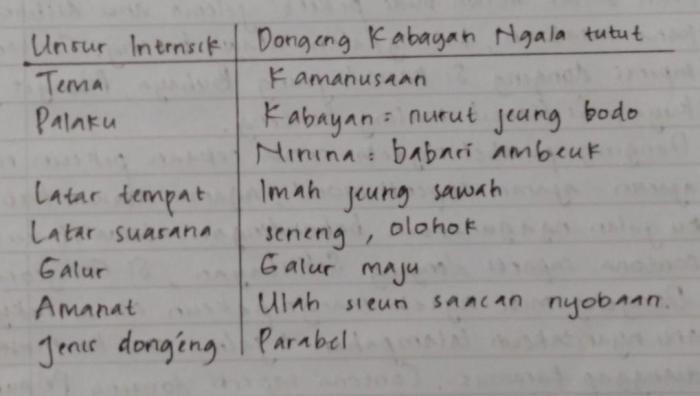 Unsur Intrnsik | Dongeng Kabayan Ngala tutut
Tema | Kamanusaan
Palaku | Kabayan : nurut jeung bodo
Ninina : babari ambeuk
Latar tempat | Imah jeung sawah
Latar suasana | seneng, olohok
Galur | Galur maju
Amanat | Ulah sieun saacan nyobaan.
Jenis dongéng. | Parabel